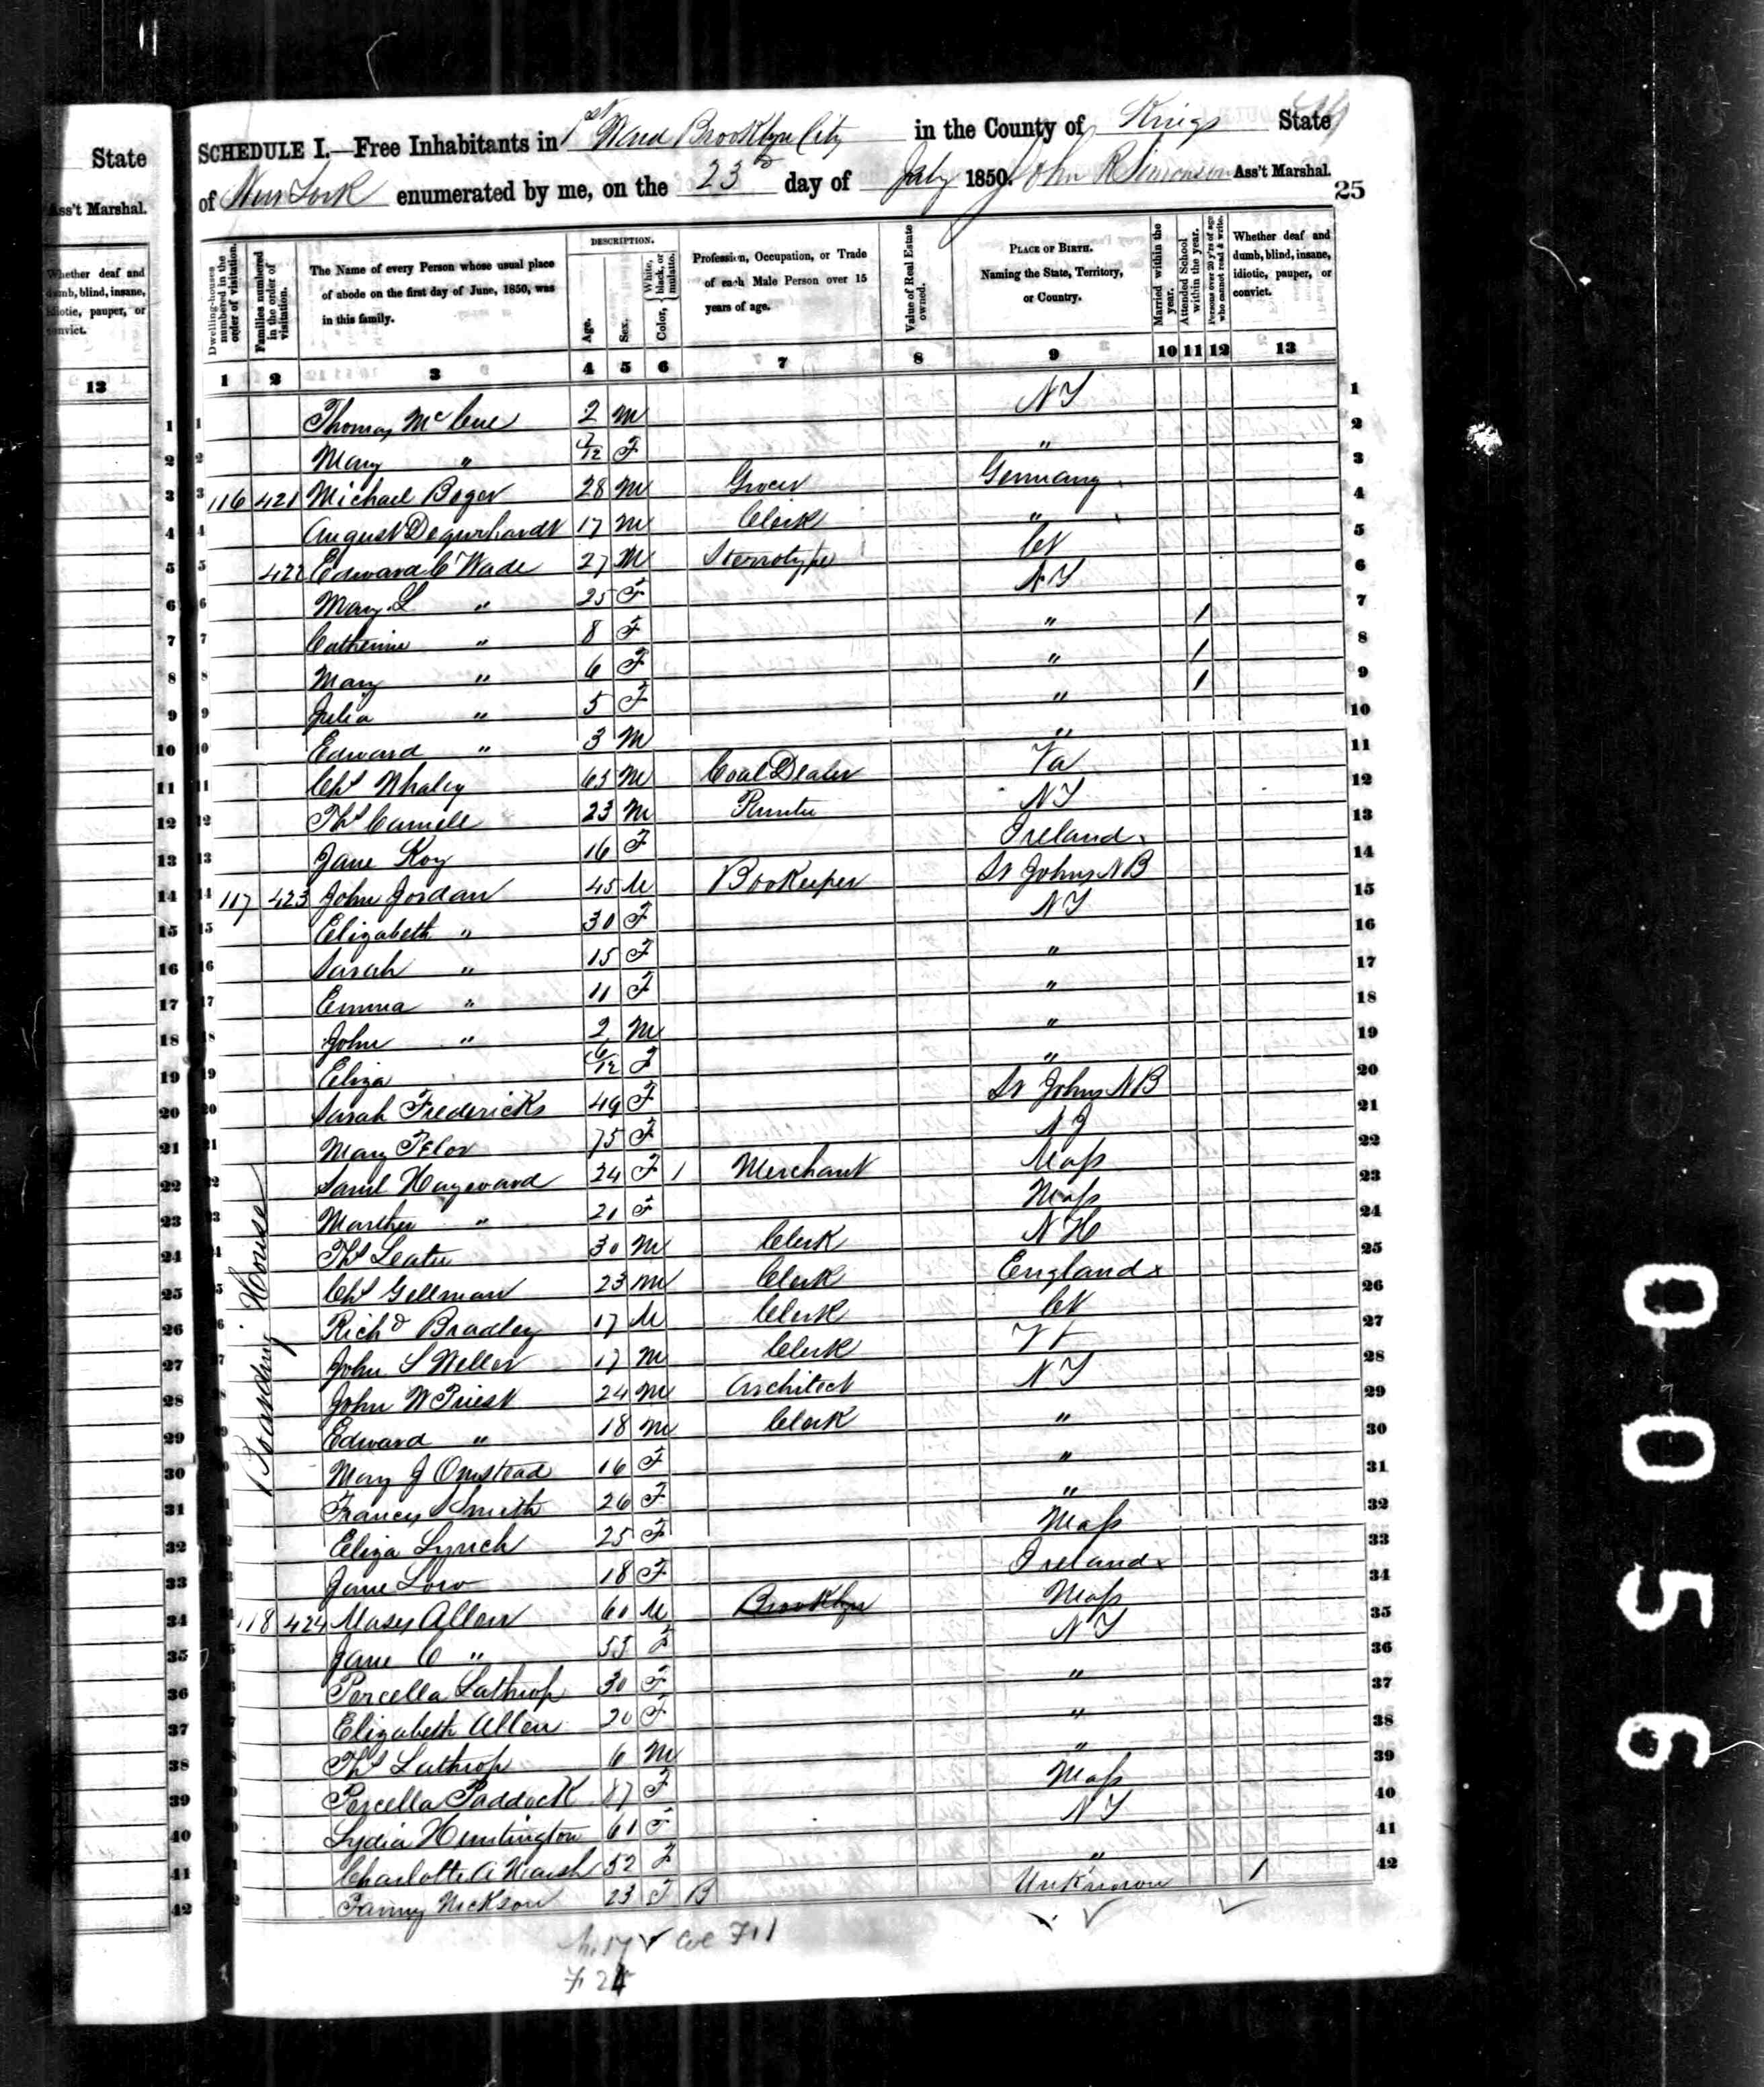 SCHEDULE I.—Free Inhabitants in 1st Ward Brooklyn City in the County of Kings State
of New York enumerated by me, on the 23d day of July 1850. John R Simonson Ass't Marshal.
25
State
Ass't Marshal.
Whether deaf and dumb, blind, insane, idiotic, pauper, or convict.
13
Dwelling-houses numbered in the order of visitation.
Families numbered in the order of visitation.
The Name of every Person whose usual place of abode on the first day of June, 1850, was in this family.
DESCRIPTION.
Age.
Sex.
Color, White, black, or mulatto.
Profession, Occupation, or Trade of each Male Person over 15 years of age.
Value of Real Estate owned.
PLACE OF BIRTH. Naming the State, Territory, or Country.
Married within the year.
Attended School within the year.
Persons over 20 y'rs of age who cannot read & write.
Whether deaf and dumb, blind, insane, idiotic, pauper, or convict.
1 2 3 4 5 6 7 8 9 10 11 12 13
1 Thomas McCue 2 M NY
2 Mary " F "
3 116 421 Michael Boger 28 M Grocer Germany
4 August Degurhardt 17 M Clerk "
5 422 Edward C Wade 27 M Sterrotype Ct
6 Mary L " 25 F NY
7 Catherine " 8 F " 1
8 Mary " 6 F " 1
9 Julia " 5 F " 1
10 Edward " 3 M "
11 Chs Whaley 63 M Coal Dealer Va
12 Ths Camell 23 M NY
13 Jane Koy 16 F Ireland
14 117 423 John Jordan 45 M Bookeeper St Johns NB
15 Elizabeth " 30 F NY
16 Sarah " 15 F "
17 Emma " 11 F "
18 John " 2 M "
19 Eliza 6/12 F "
20 Sarah Fredericks 49 F St Johns NB
21 Mary 75 F NJ
22 Saml Hayward 24 F 1 Merchant Mass
23 Marther " 21 F Mass
24 Ths 30 M Clerk NH
25 Chs Gellman 23 M Clerk England
26 Richd Bradley 17 M Clerk Ct
27 John S Weller 17 M Clerk Vt
28 John W Priest 24 M Architect NY
29 Edward " 18 M Clerk "
30 Mary J Omstead 16 F "
31 Frances Smith 26 F "
32 Eliza Lynch 25 F Mass
33 Jane Low 18 F Ireland
34 118 424 Moses Allen 60 M Brooklyn Mass
35 Jane C " 55 F NY
36 Percella Lathrop 30 F "
37 Elizabeth Allen 20 F "
38 Ths Lathrop 6 M "
39 Percella Paddock 87 F Mass
40 Lydia Huntington 61 F NY
41 Charlotte A Marsh 52 F "
42 Fanny Nickson 23 F B Unknown 1
Boarding House
M 17
F 24
0056